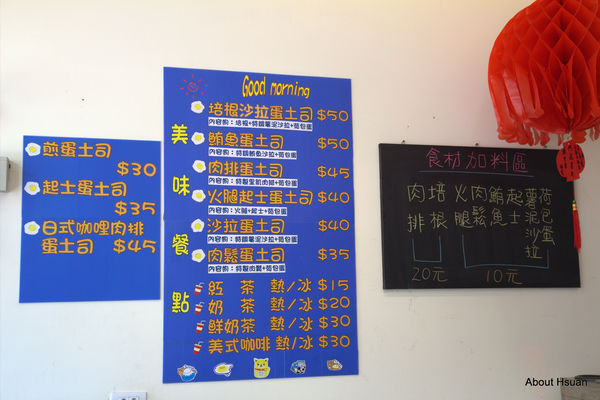 煎蛋土司
$30
起士蛋土司
$35
日式咖哩肉排
蛋土司 $45
Good morning
美味餐點
培根沙拉蛋土司 $50
內容物：培根+特調薯泥沙拉+荷包蛋
鮪魚蛋土司 $50
內容物：特調鮪魚沙拉+荷包蛋
肉排蛋土司 $45
火腿起士蛋土司 $40
內容物：火腿+起士+荷包蛋
沙拉蛋土司 $40
內容物：特調薯泥沙拉+荷包蛋
肉鬆蛋土司 $35
內容物：特製肉鬆+荷包蛋
紅 茶 熱/冰 $15
奶 茶 熱/冰 $20
鮮奶茶 熱/冰 $30
美式咖啡 熱/冰 $30
食材加料區
肉排
培根
20元
火腿
肉鬆
鮪魚
起士
薯泥沙拉
荷包蛋
10元
About Hsuan